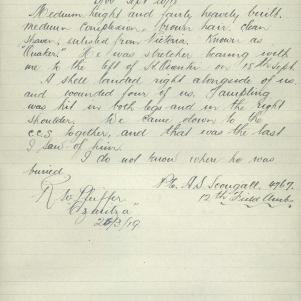 Sept 20/19
Medium height and fairly heavily built.
medium Complexion, brown hair, clean
Shaven, enlisted from Victoria. Known as
"Quaker". He & I was stretcher bearing with
me to the left of St Quentin on 18th Sept.
A shell landed right alongside of us
and wounded four of us. Sampling
was hit in both legs and in the right
shoulder. We came down to the
C.C.S. together, and that was the last
I saw of him.
I do not know where he was
buried.
Pte. A.S. Scougall. 4767.
12th Field Amb.
"Czaritza"
20/3/19